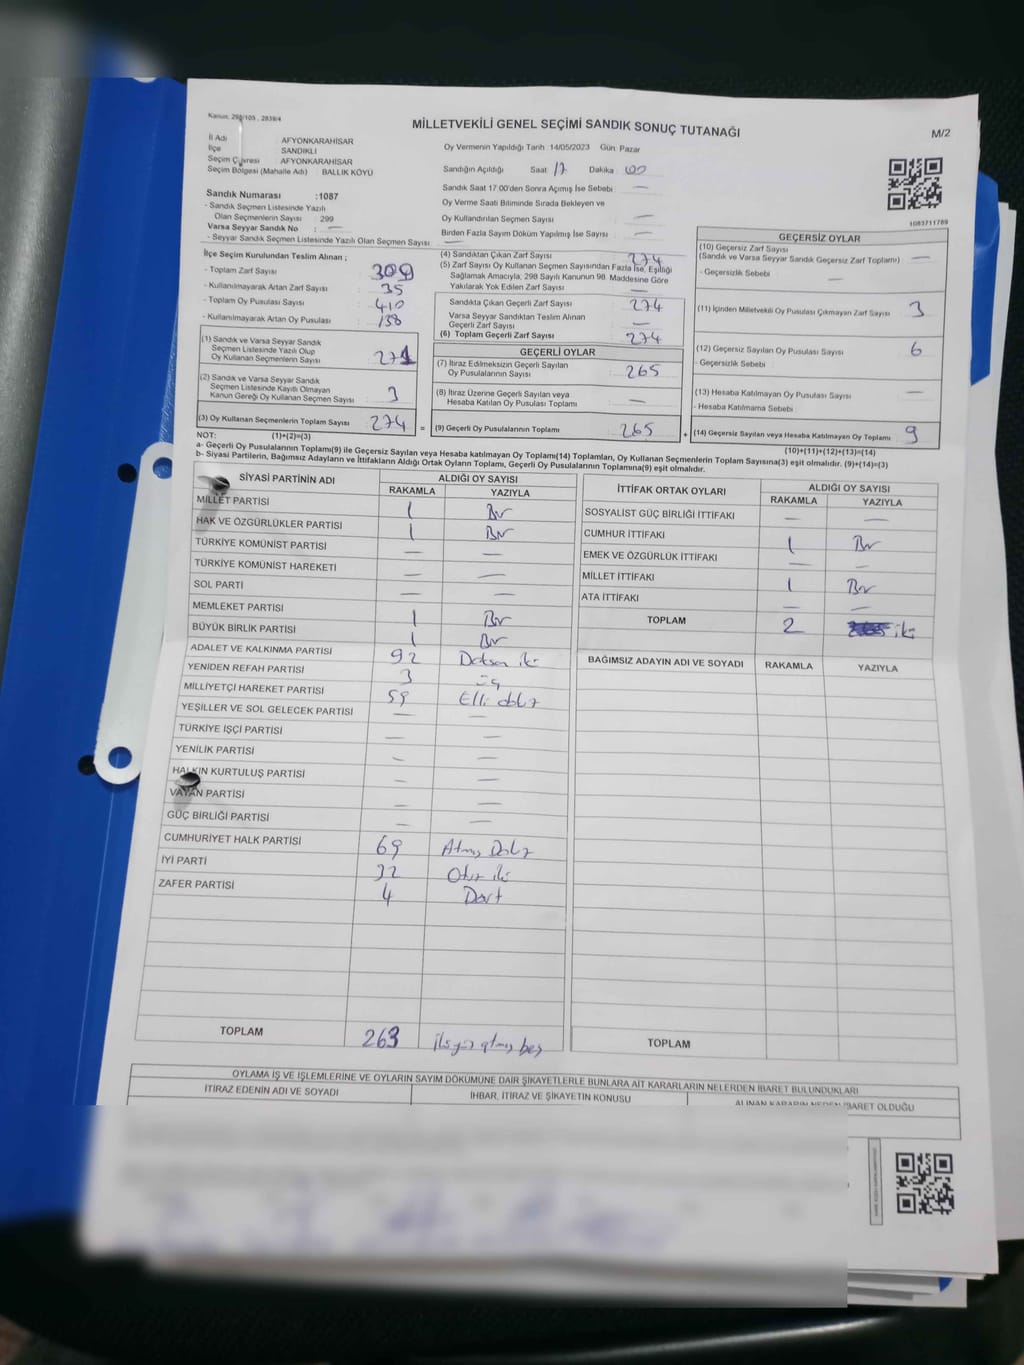 Kanun: 298/105 , 2839/4
MİLLETVEKİLİ GENEL SEÇİMİ SANDIK SONUÇ TUTANAĞI
M/2
İl Adı AFYONKARAHİSAR
İlçe SANDIKLI
Seçim Çevresi AFYONKARAHİSAR
Seçim Bölgesi (Mahalle Adı) BALLIK KÖYÜ
Oy Vermenin Yapıldığı Tarih 14/05/2023 Gün: Pazar
Sandığın Açıldığı Saat 17 Dakika 00
Sandık Saat 17:00'den Sonra Açımış İse Sebebi —
Oy Verme Saati Bitiminde Sırada Bekleyen ve
Oy Kullandırılan Seçmen Sayısı —
Birden Fazla Sayım Döküm Yapılmış İse Sayısı —
1083711789
Sandık Numarası :1087
- Sandık Seçmen Listesinde Yazılı
Olan Seçmenlerin Sayısı : 299
Varsa Seyyar Sandık No : —
- Seyyar Sandık Seçmen Listesinde Yazılı Olan Seçmen Sayısı —
İlçe Seçim Kurulundan Teslim Alınan ;
- Toplam Zarf Sayısı 309
- Kullanılmayarak Artan Zarf Sayısı 35
- Toplam Oy Pusulası Sayısı 410
- Kullanılmayarak Artan Oy Pusulası 138
(1) Sandık ve Varsa Seyyar Sandık
Seçmen Listesinde Yazılı Olup
Oy Kullanan Seçmenlerin Sayısı 271
(2) Sandık ve Varsa Seyyar Sandık
Seçmen Listesinde Kayıtlı Olmayan
Kanun Gereği Oy Kullanan Seçmen Sayısı 3
(3) Oy Kullanan Seçmenlerin Toplam Sayısı 274 =
(4) Sandıktan Çıkan Zarf Sayısı 274
(5) Zarf Sayısı Oy Kullanan Seçmen Sayısından Fazla İse, Eşitliği
Sağlamak Amacıyla, 298 Sayılı Kanunun 98. Maddesine Göre
Yakılarak Yok Edilen Zarf Sayısı —
Sandıkta Çıkan Geçerli Zarf Sayısı 274
Varsa Seyyar Sandıktan Teslim Alınan
Geçerli Zarf Sayısı —
(6) Toplam Geçerli Zarf Sayısı 274
GEÇERLİ OYLAR
(7) İtiraz Edilmeksizin Geçerli Sayılan
Oy Pusulalarının Sayısı 265
(8) İtiraz Üzerine Geçerli Sayılan veya
Hesaba Katılan Oy Pusulası Toplamı —
(9) Geçerli Oy Pusulalarının Toplamı 265 +
GEÇERSİZ OYLAR
(10) Geçersiz Zarf Sayısı
(Sandık ve Varsa Seyyar Sandık Geçersiz Zarf Toplamı) —
- Geçersizlik Sebebi —
(11) İçinden Milletvekili Oy Pusulası Çıkmayan Zarf Sayısı 3
(12) Geçersiz Sayılan Oy Pusulası Sayısı 6
- Geçersizlik Sebebi
(13) Hesaba Katılmayan Oy Pusulası Sayısı —
- Hesaba Katılmama Sebebi
(14) Geçersiz Sayılan veya Hesaba Katılmayan Oy Toplamı 9
NOT: (1)+(2)=(3) (10)+(11)+(12)+(13)=(14)
a- Geçerli Oy Pusulalarının Toplamı(9) ile Geçersiz Sayılan veya Hesaba katılmayan Oy Toplamı(14) Toplamları, Oy Kullanan Seçmenlerin Toplam Sayısına(3) eşit olmalıdır. (9)+(14)=(3)
b- Siyasi Partilerin, Bağımsız Adayların ve İttifakların Aldığı Ortak Oyların Toplamı, Geçerli Oy Pusulalarının Toplamına(9) eşit olmalıdır.
SİYASİ PARTİNİN ADI ALDIĞI OY SAYISI
RAKAMLA YAZIYLA
MİLLET PARTİSİ 1 Bir
HAK VE ÖZGÜRLÜKLER PARTİSİ 1 Bir
TÜRKİYE KOMÜNİST PARTİSİ — —
TÜRKİYE KOMÜNİST HAREKETİ — —
SOL PARTİ — —
MEMLEKET PARTİSİ 1 Bir
BÜYÜK BİRLİK PARTİSİ 1 Bir
ADALET VE KALKINMA PARTİSİ 92 Doksan iki
YENİDEN REFAH PARTİSİ 3 üç
MİLLİYETÇİ HAREKET PARTİSİ 59 Elli dokuz
YEŞİLLER VE SOL GELECEK PARTİSİ — —
TÜRKİYE İŞÇİ PARTİSİ — —
YENİLİK PARTİSİ — —
HALKIN KURTULUŞ PARTİSİ — —
VATAN PARTİSİ — —
GÜÇ BİRLİĞİ PARTİSİ — —
CUMHURİYET HALK PARTİSİ 69 Atmış Dokuz
İYİ PARTİ 32 Otuz iki
ZAFER PARTİSİ 4 Dört
TOPLAM 263 ikiyüz atmış beş
İTTİFAK ORTAK OYLARI ALDIĞI OY SAYISI
RAKAMLA YAZIYLA
SOSYALİST GÜÇ BİRLİĞİ İTTİFAKI — —
CUMHUR İTTİFAKI 1 Bir
EMEK VE ÖZGÜRLÜK İTTİFAKI — —
MİLLET İTTİFAKI 1 Bir
ATA İTTİFAKI — —
TOPLAM 2 iki
BAĞIMSIZ ADAYIN ADI VE SOYADI RAKAMLA YAZIYLA
TOPLAM
OYLAMA İŞ VE İŞLEMLERİNE VE OYLARIN SAYIM DÖKÜMÜNE DAİR ŞİKAYETLERLE BUNLARA AİT KARARLARIN NELERDEN İBARET BULUNDUKLARI
İTİRAZ EDENİN ADI VE SOYADI İHBAR, İTİRAZ VE ŞİKAYETİN KONUSU ALINAN KARARIN NEDEN İBARET OLDUĞU